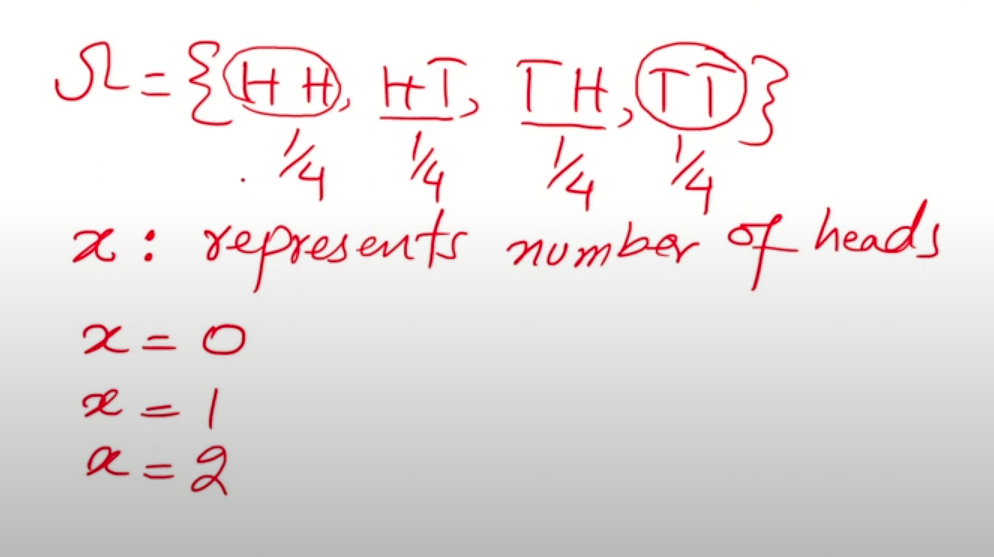 Ω = {HH, HT, TH, TT}
1/4 1/4 1/4 1/4
x : represents number of heads
x = 0
x = 1
x = 2